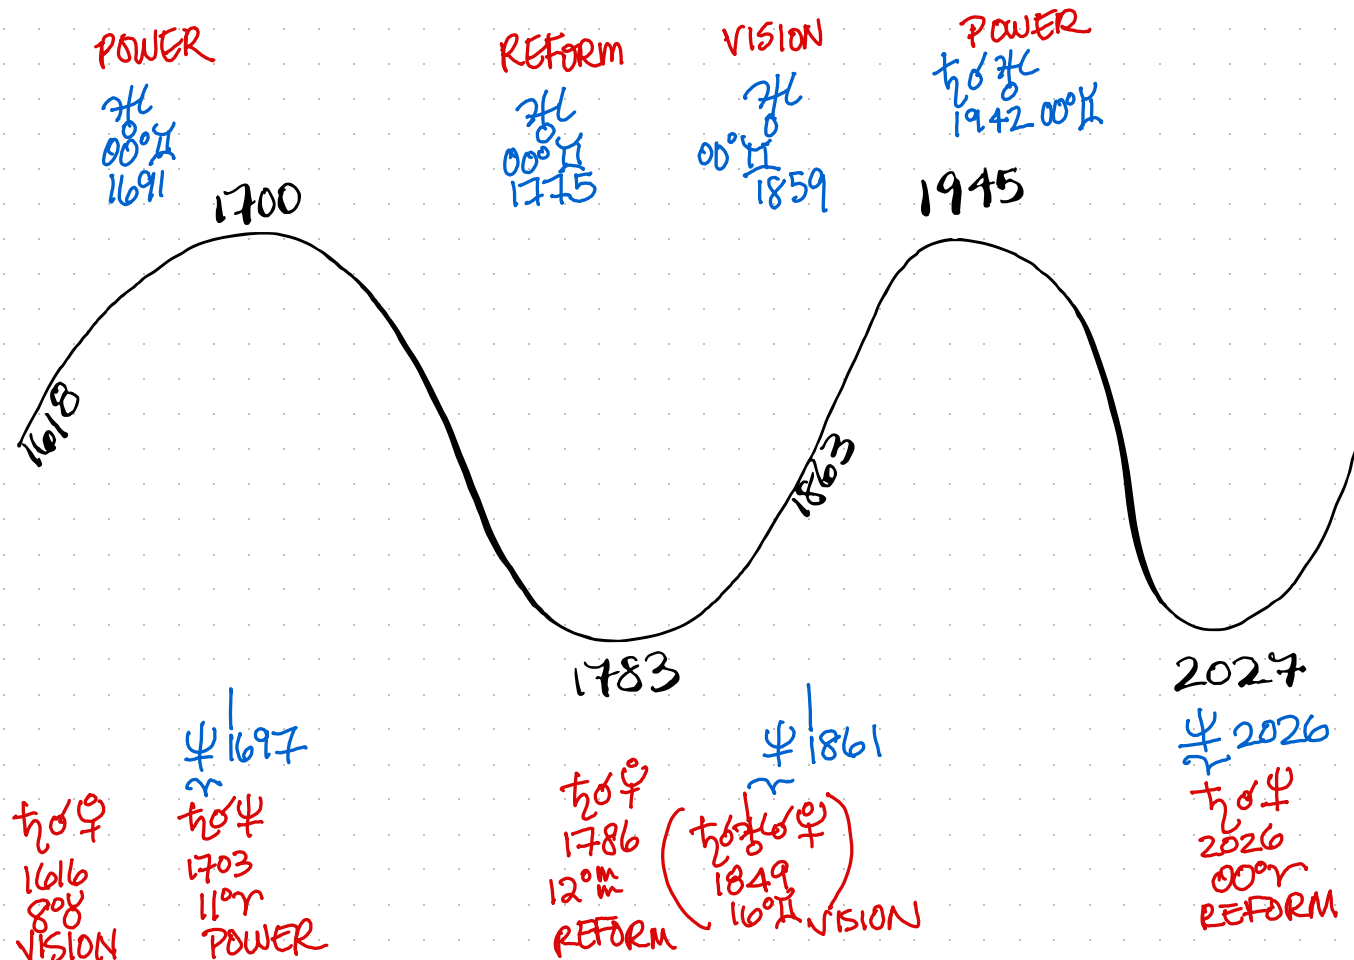 POWER
♅
00°♊
1691
REFORM
♅
00°♊
1775
VISION
♅
00°♊
1859
POWER
♄☌♅
1942 00°♊
1700
1945
1618
1863
1783
2027
♆ 1697
♈
♆ 1861
♈
♆ 2026
♈
♄☌♇
1616
8°♉
VISION
♄☌♆
1703
11°♈
POWER
♄☌♇
1786
12°♒
REFORM
(♄☌♅☌♇
1849
16°♊)
VISION
♄☌♆
2026
00°♈
REFORM